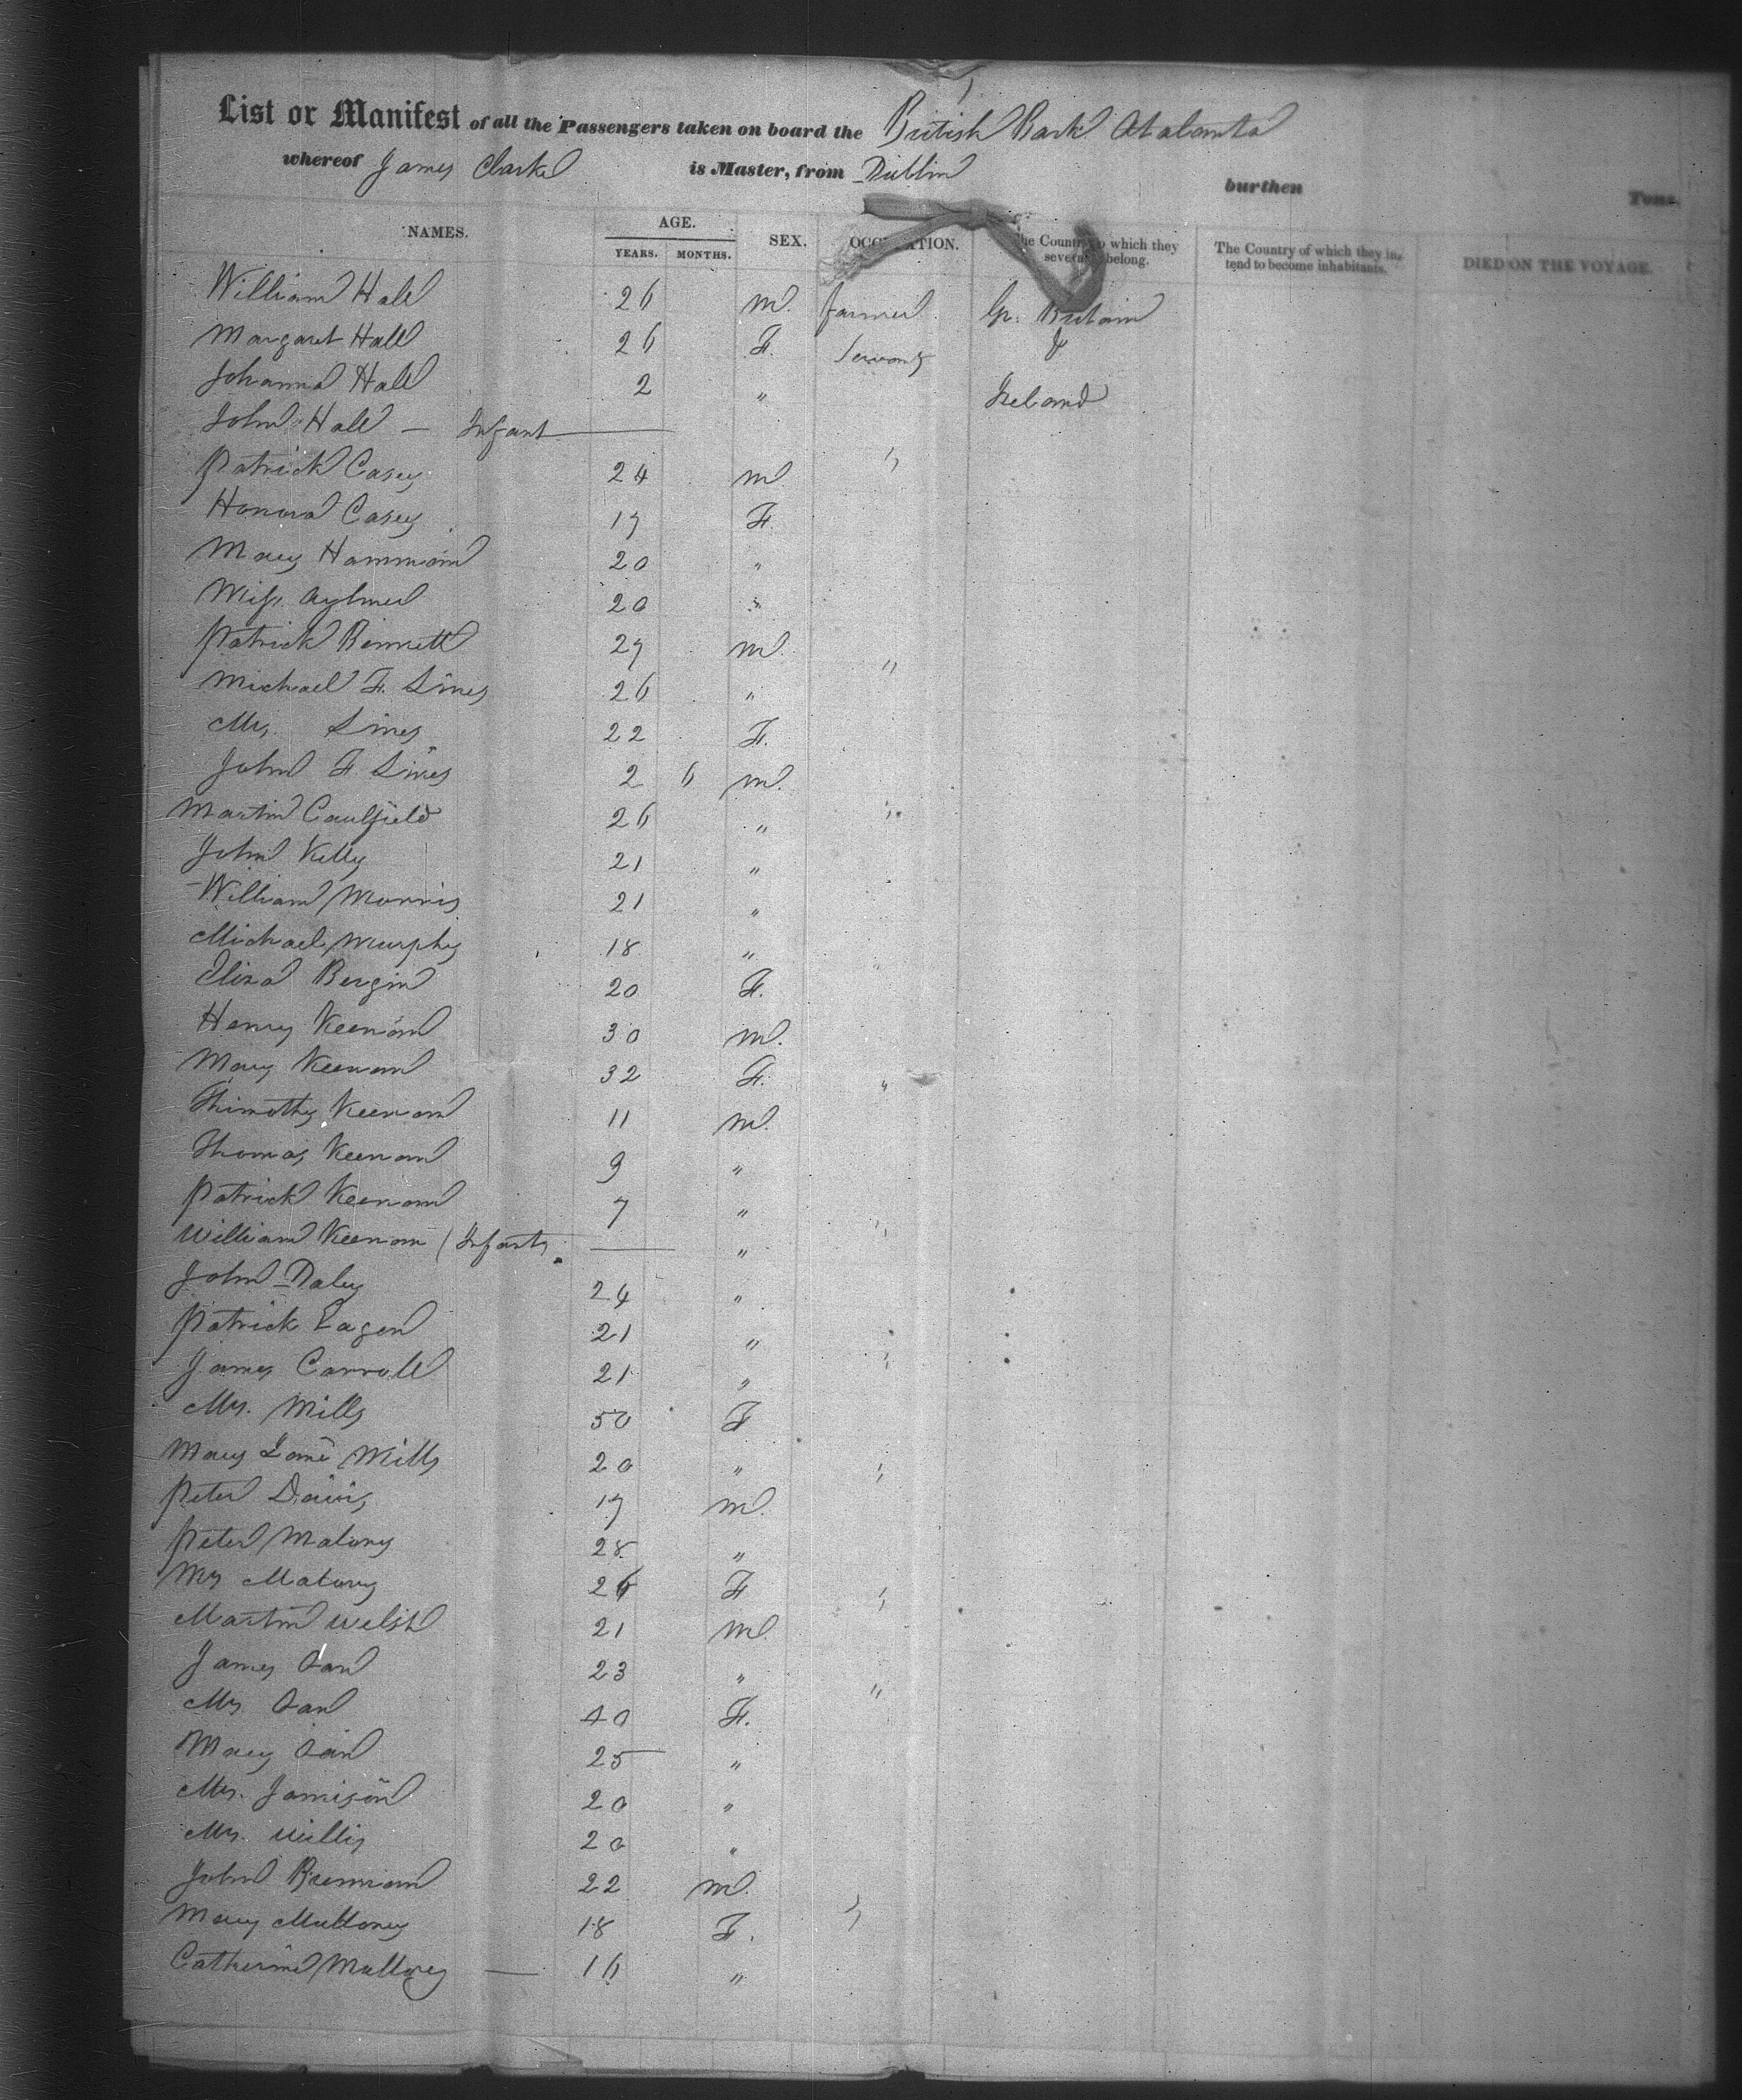 List or Manifest of all the Passengers taken on board the British Bark Atalanta
whereof James Clarke is Master, from Dublin burthen Tons.
NAMES. AGE. SEX. OCCUPATION. The Country to which they severally belong. The Country of which they intend to become inhabitants. DIED ON THE VOYAGE.
YEARS. MONTHS.
William Hall 26 M. farmer Gr. Britain
Margaret Hall 26 F. Servant &
Johanna Hall 2 " Ireland
John Hall — Infant
Patrick Casey 24 M "
Honora Casey 17 F.
Mary Hammond 20 "
Miss Aylmer 20 "
Patrick Bennett 27 M. "
Michael F. Sines 26 "
Mrs. Sines 22 F.
John F. Sines 2 6 M.
Martin Caulfield 26 " "
John Kelly 21 "
William Morris 21 "
Michael Murphy 18 " "
Eliza Bergin 20 F.
Henry Keenan 30 M.
Mary Keenan 32 F. "
Thimothy Keenan 11 M.
Thomas Keenan 9 "
Patrick Keenan 7 " "
William Keenan (Infant) — "
John Daley 24 "
Patrick Eagen 21 "
James Carroll 21 " "
Mrs. Mills 50 F
Mary Jane Mills 20 " "
Peter Davis 17 M.
Peter Malony 28 "
Mrs Malony 26 F "
Martin Welsh 21 M.
James 23 " "
Mrs. 40 F.
Mary 25 "
Mrs. Jamison 20 "
Mrs. Willis 20 "
John Brennan 22 M.
Mary Mulloney 18 F. "
Catherine Mulloney — 16 "